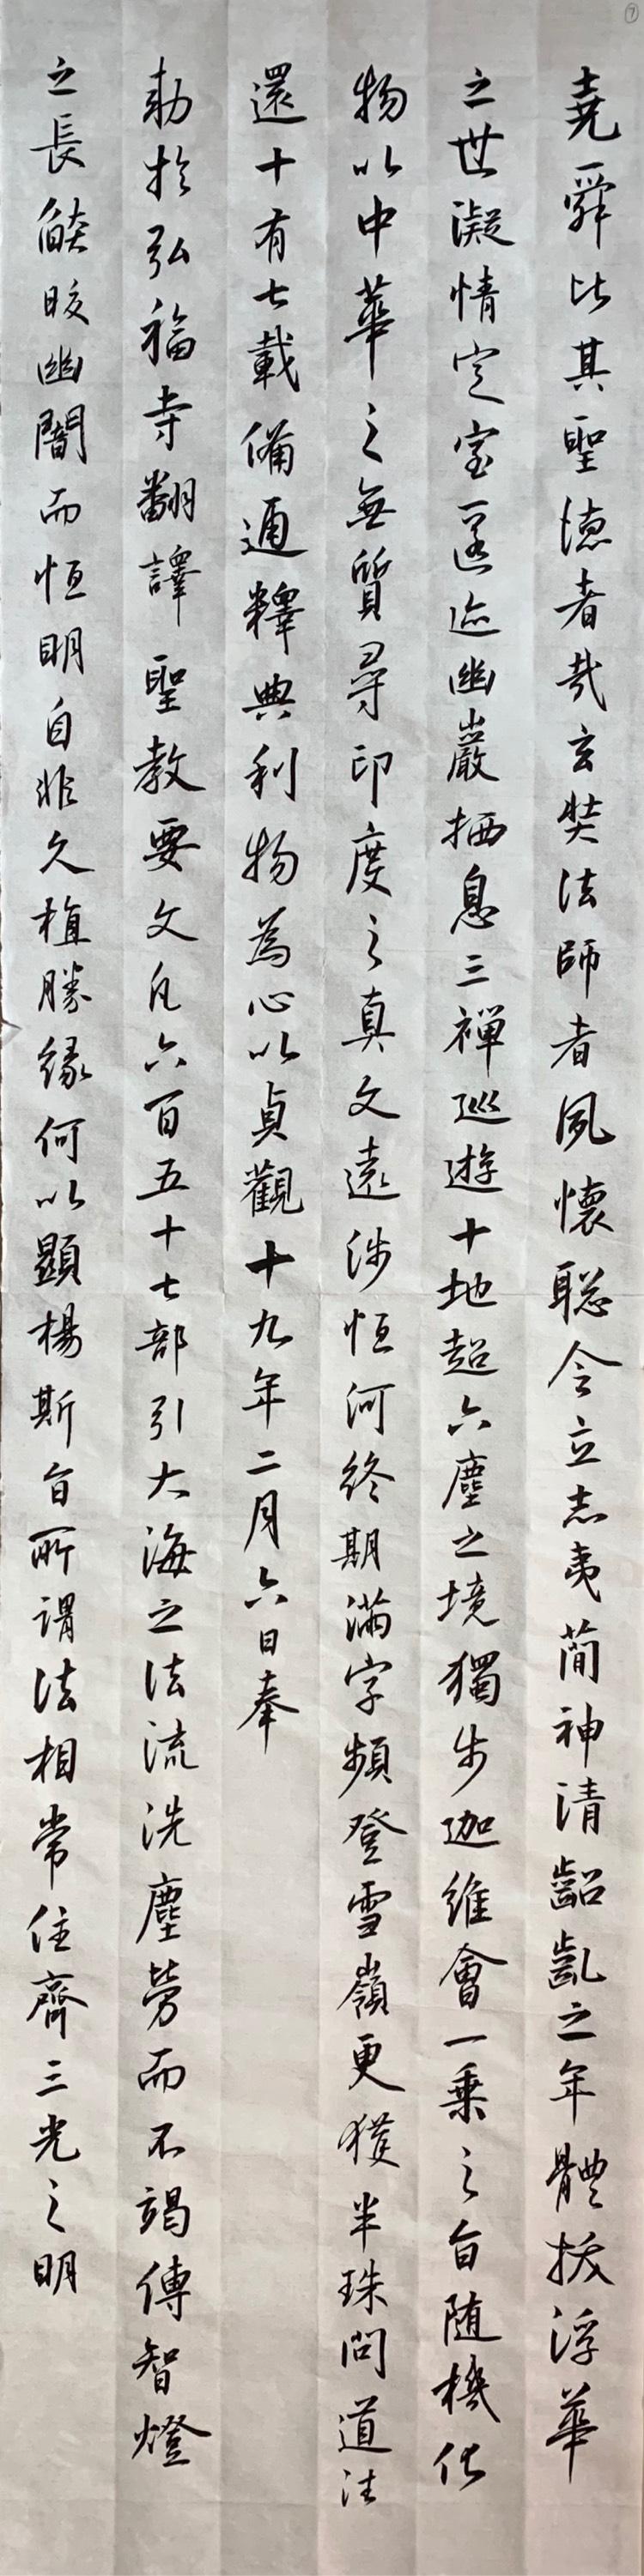 ⑦
堯舜比其聖德者哉玄奘法師者夙懷聡令立志夷蕳神清齠齔之年體拔浮華
之世凝情定室匿迹幽巖栖息三禪巡遊十地超六塵之境獨步迦維會一乗之旨随機化
物以中華之無質尋印度之真文遠涉恒河終期滿字頻登雪嶺更獲半珠問道往
還十有七載備通釋典利物為心以貞觀十九年二月六日奉
勅於弘福寺翻譯聖教要文凡六百五十七部引大海之法流洗塵勞而不竭傳智燈
之長皎幽闇而恒明自非久植勝緣何以顯楊斯旨所謂法相常住齊三光之明